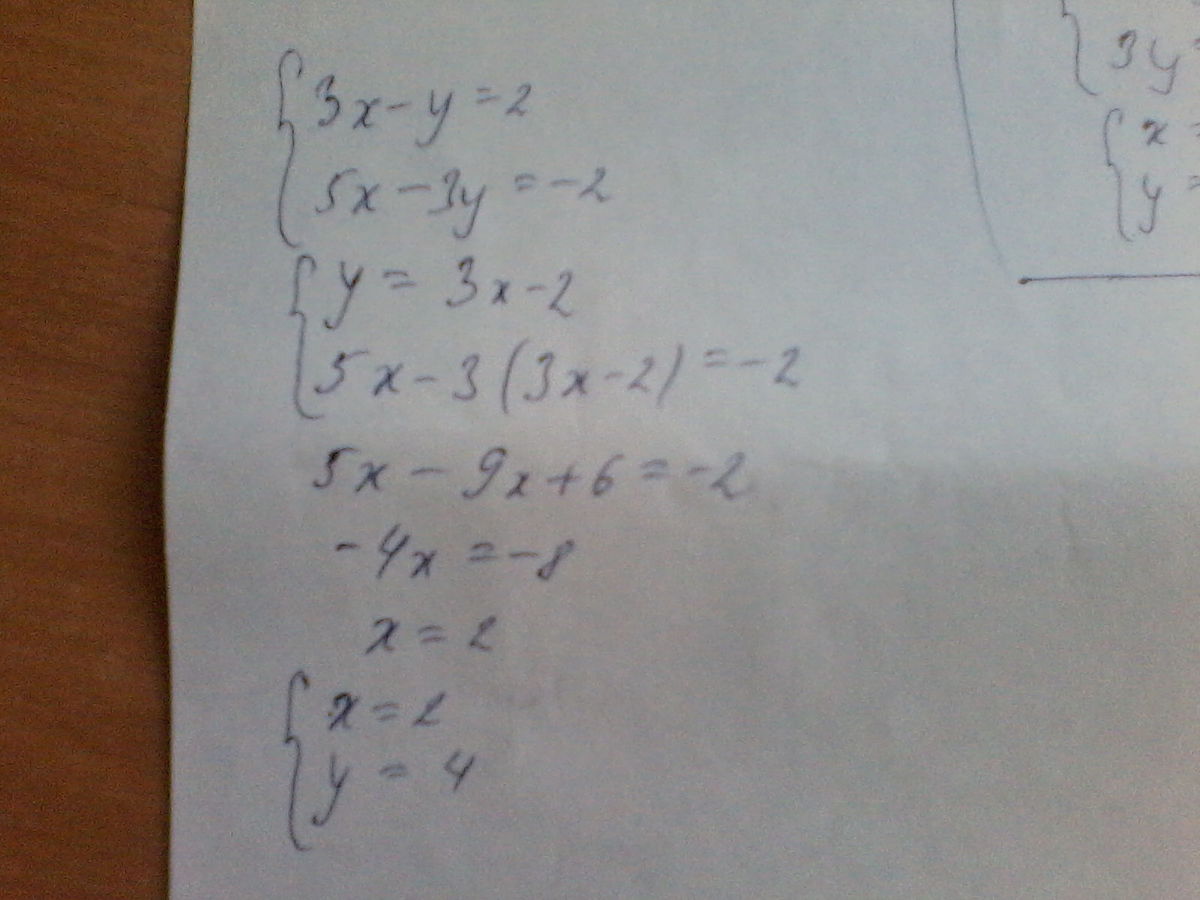 3x - y = 2
5x - 3y = -2
y = 3x - 2
5x - 3(3x - 2) = -2
5x - 9x + 6 = -2
-4x = -8
x = 2
x = 2
y = 4
3y =
x =
y =